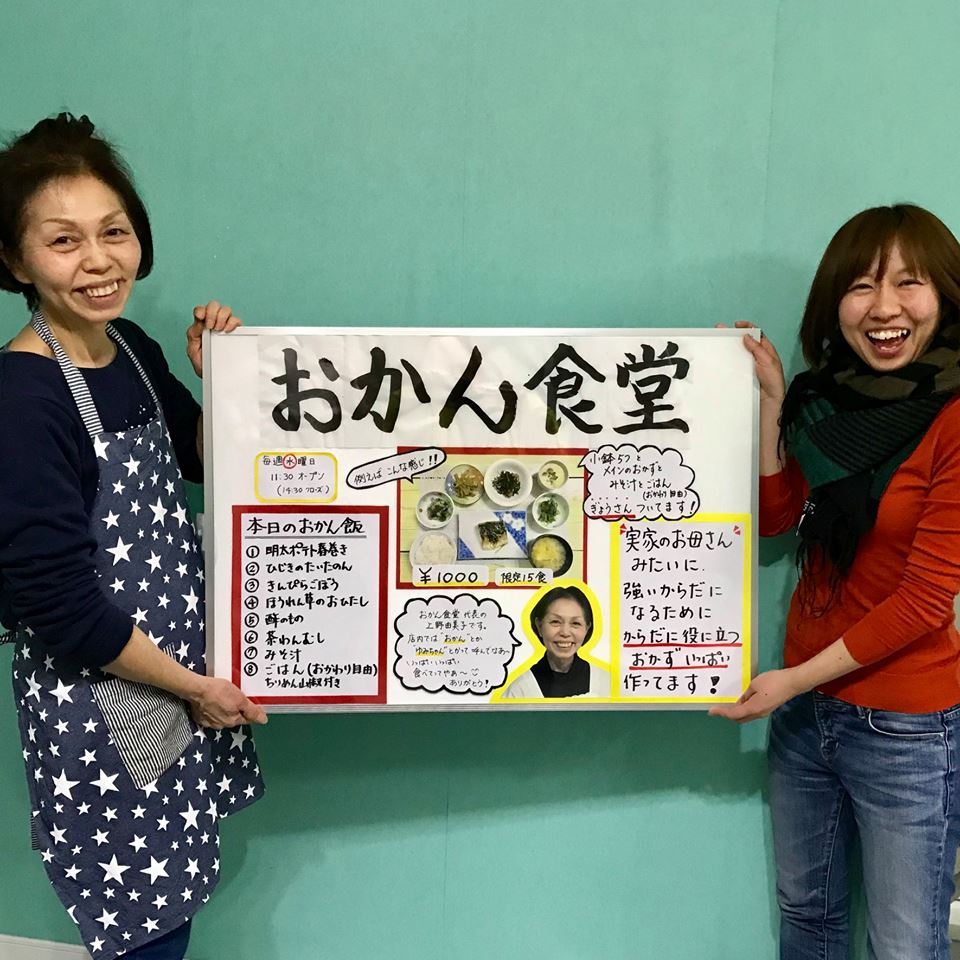 おかん食堂
毎週水曜日
11:30 オープン
(14:30 クローズ)
例えば こんな感じ!!
小鉢5つと
メインのおかずと
みそ汁とごはん
(おかわり自由)
ぎょうさん ついてます!
本日のおかん飯
① 明太ポテト春巻き
② ひじきのたいたのん
③ きんぴらごぼう
④ ほうれん草のおひたし
⑤ 酢のもの
⑥ 茶わんむし
⑦ みそ汁
⑧ ごはん(おかわり自由)
ちりめん山椒付き
¥1000
限定15食
おかん食堂 代表の
上野由美子です。
店内では"おかん"とか
"ゆみちゃん"とかって呼んでなぁ〜
いっぱいいっぱい
食べてってやぁ〜
ありがとう!
実家のお母さん
みたいに
強いからだに
なるために
からだに役に立つ
おかず いっぱい
作ってます!